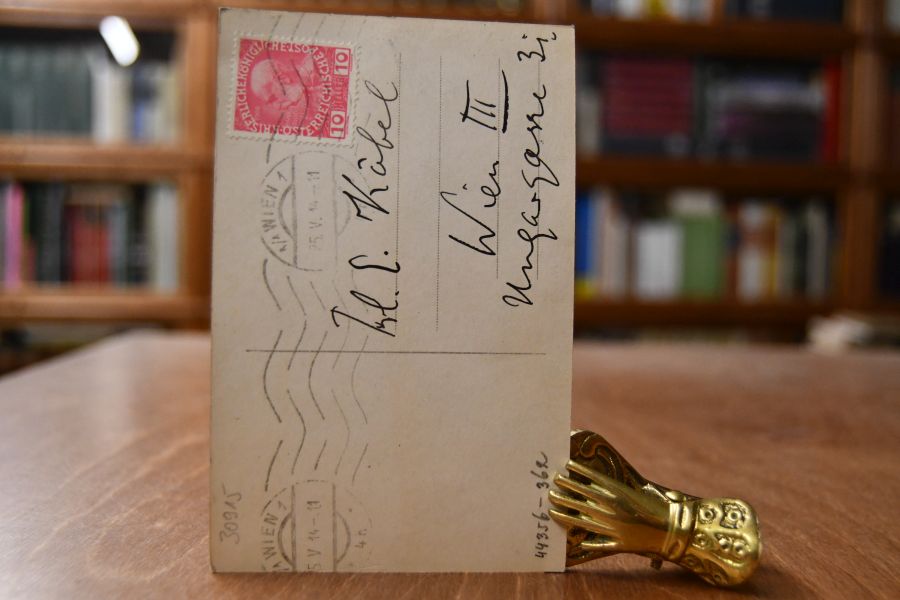 KAISERLICHE KÖNIGLICHE ÖSTERREICHISCHE POST
10 10
1/1 WIEN 1
25. V. 14-11
Frl. E. Käbel
Wien III
Ungargasse 3i
WIEN
5 V 14-11
30915
44356-362